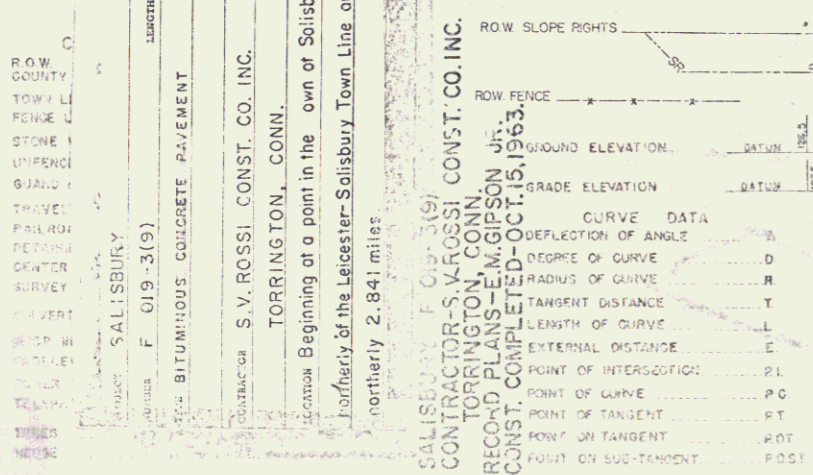 R.O.W.
COUNTY
TOWN
FENCE
STONE
GUARD
TRAVEL
CENTER
SURVEY
LENGTH
PROJECT SALISBURY
NUMBER F 019-3(9)
TYPE BITUMINOUS CONCRETE PAVEMENT
CONTRACTOR S.V. ROSSI CONST. CO. INC.
TORRINGTON, CONN.
LOCATION Beginning at a point in the own of Salisb
northerly of the Leicester-Salisbury Town Line a
northerly 2.841 miles
SALISBURY F 019-3(9)
CONTRACTOR-S.V.ROSSI CONST. CO. INC.
TORRINGTON, CONN.
RECORD PLANS-E.M.GIPSON JR.
CONST. COMPLETED-OCT.15,1963.
R.O.W. SLOPE RIGHTS
SR
R.O.W. FENCE x x x
GROUND ELEVATION DATUM 126.5
GRADE ELEVATION DATUM
CURVE DATA
DEFLECTION OF ANGLE
DEGREE OF CURVE D
RADIUS OF CURVE R
TANGENT DISTANCE T
LENGTH OF CURVE L
EXTERNAL DISTANCE E
POINT OF INTERSECTION P.I.
POINT OF CURVE P.C.
POINT OF TANGENT P.T.
POINT ON TANGENT P.O.T.
POINT ON SUB-TANGENT P.O.S.T.